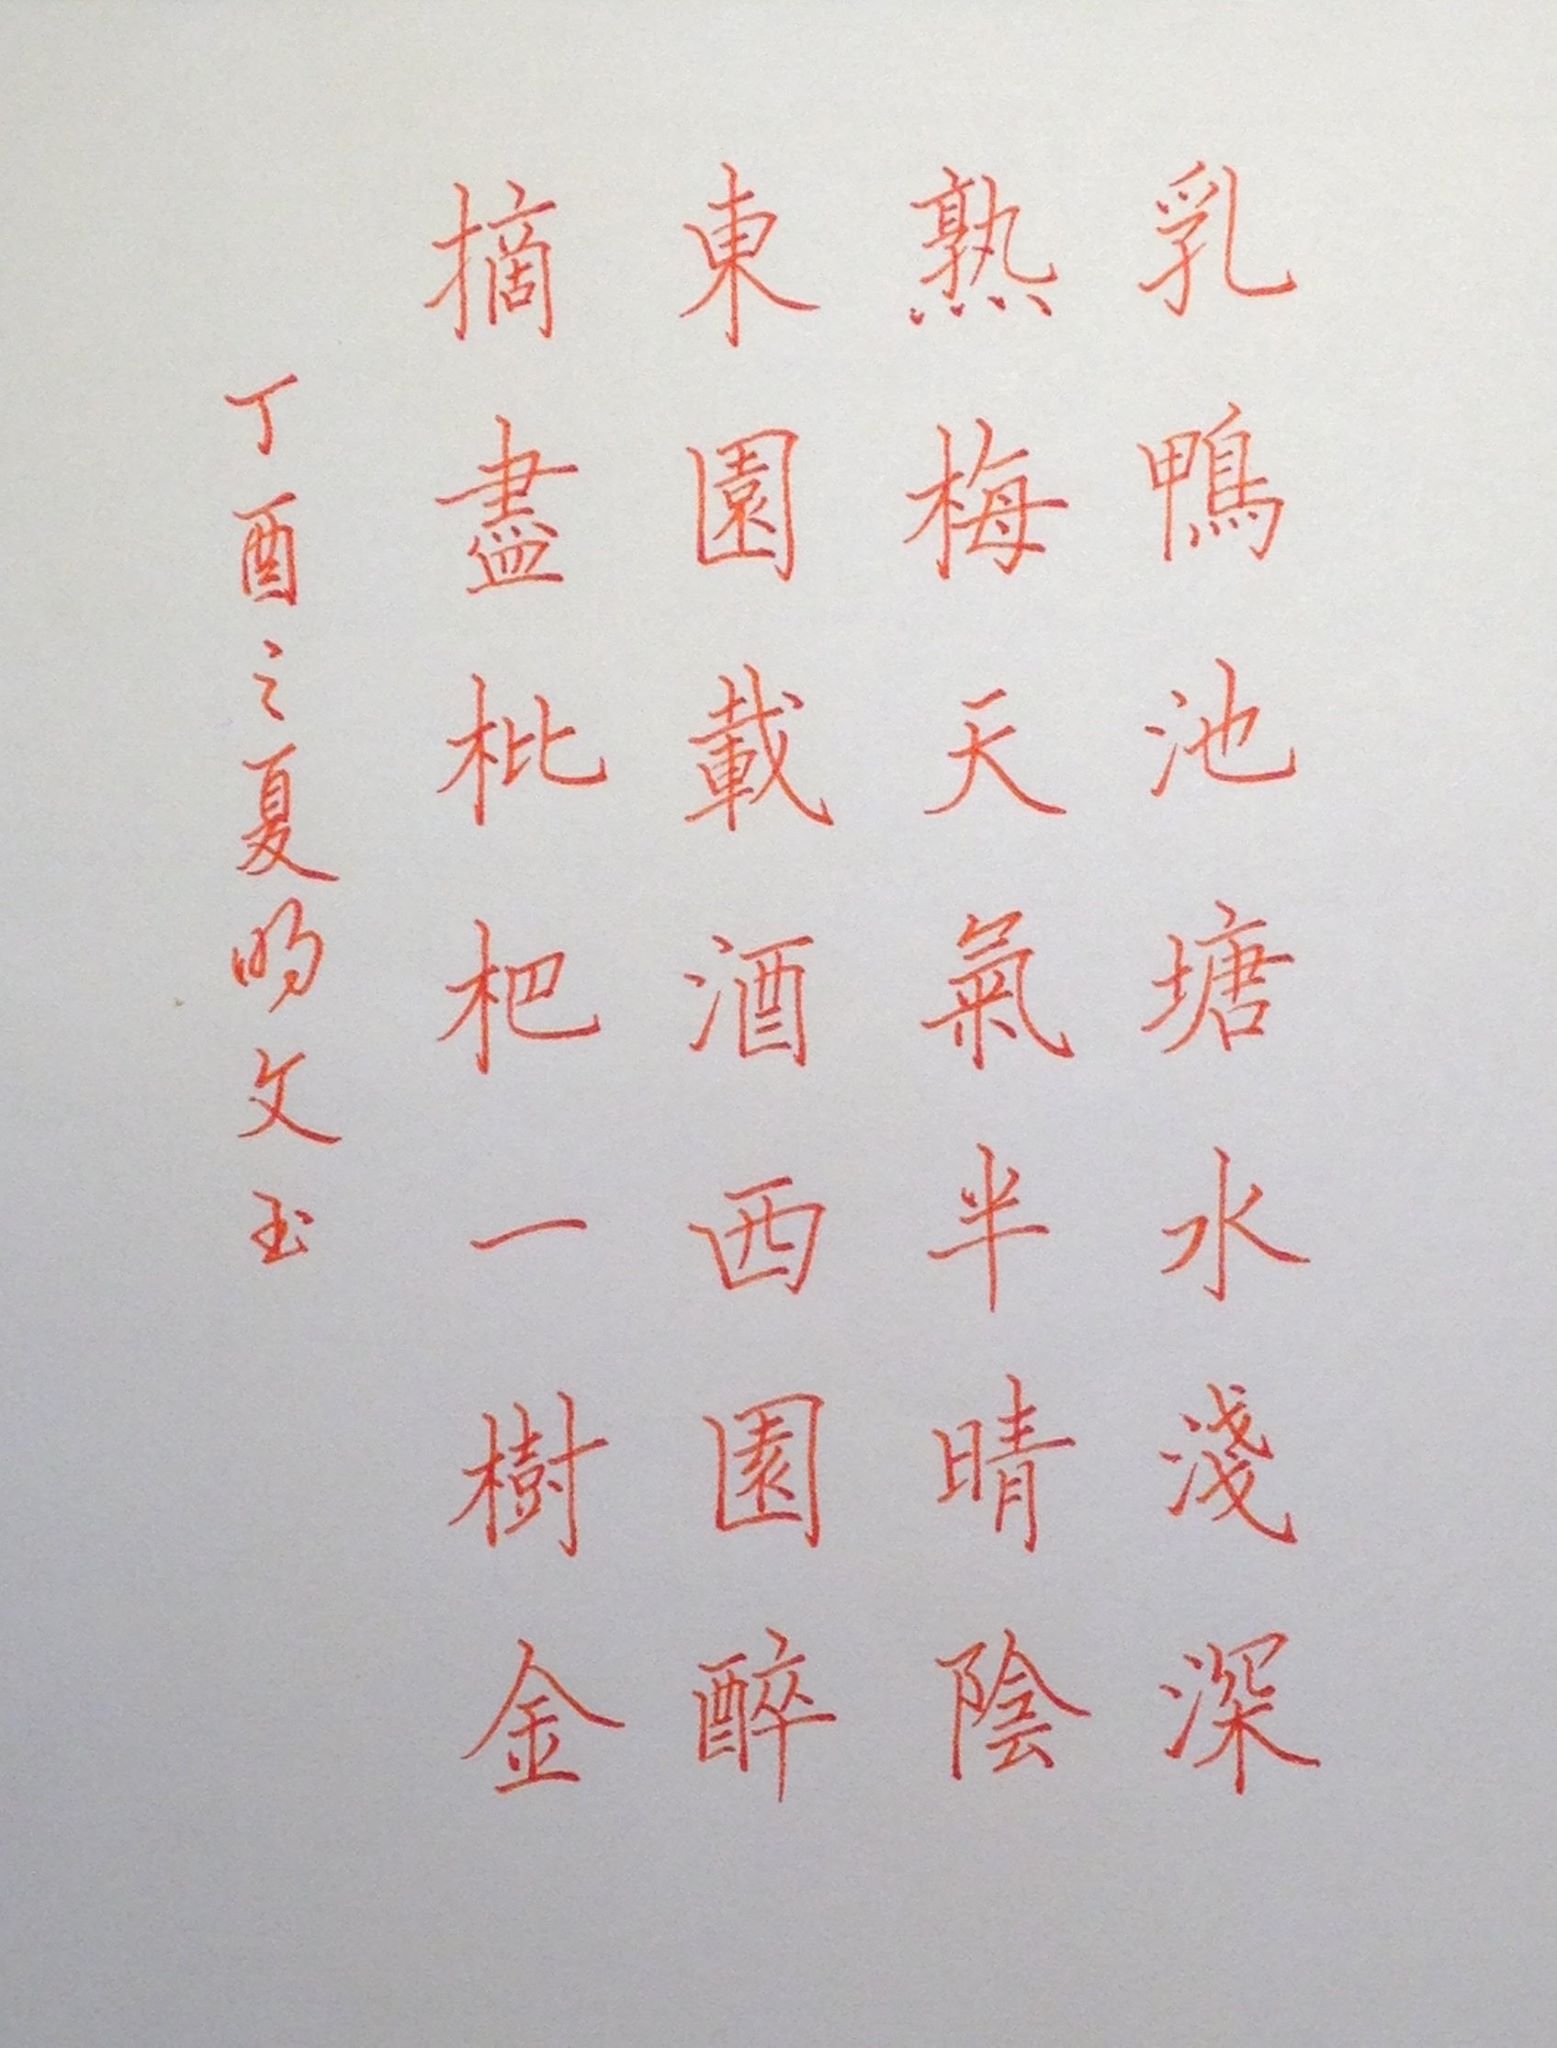 乳鴨池塘水淺深
熟梅天氣半晴陰
東園載酒西園醉
摘盡枇杷一樹金
丁酉之夏昀文玉